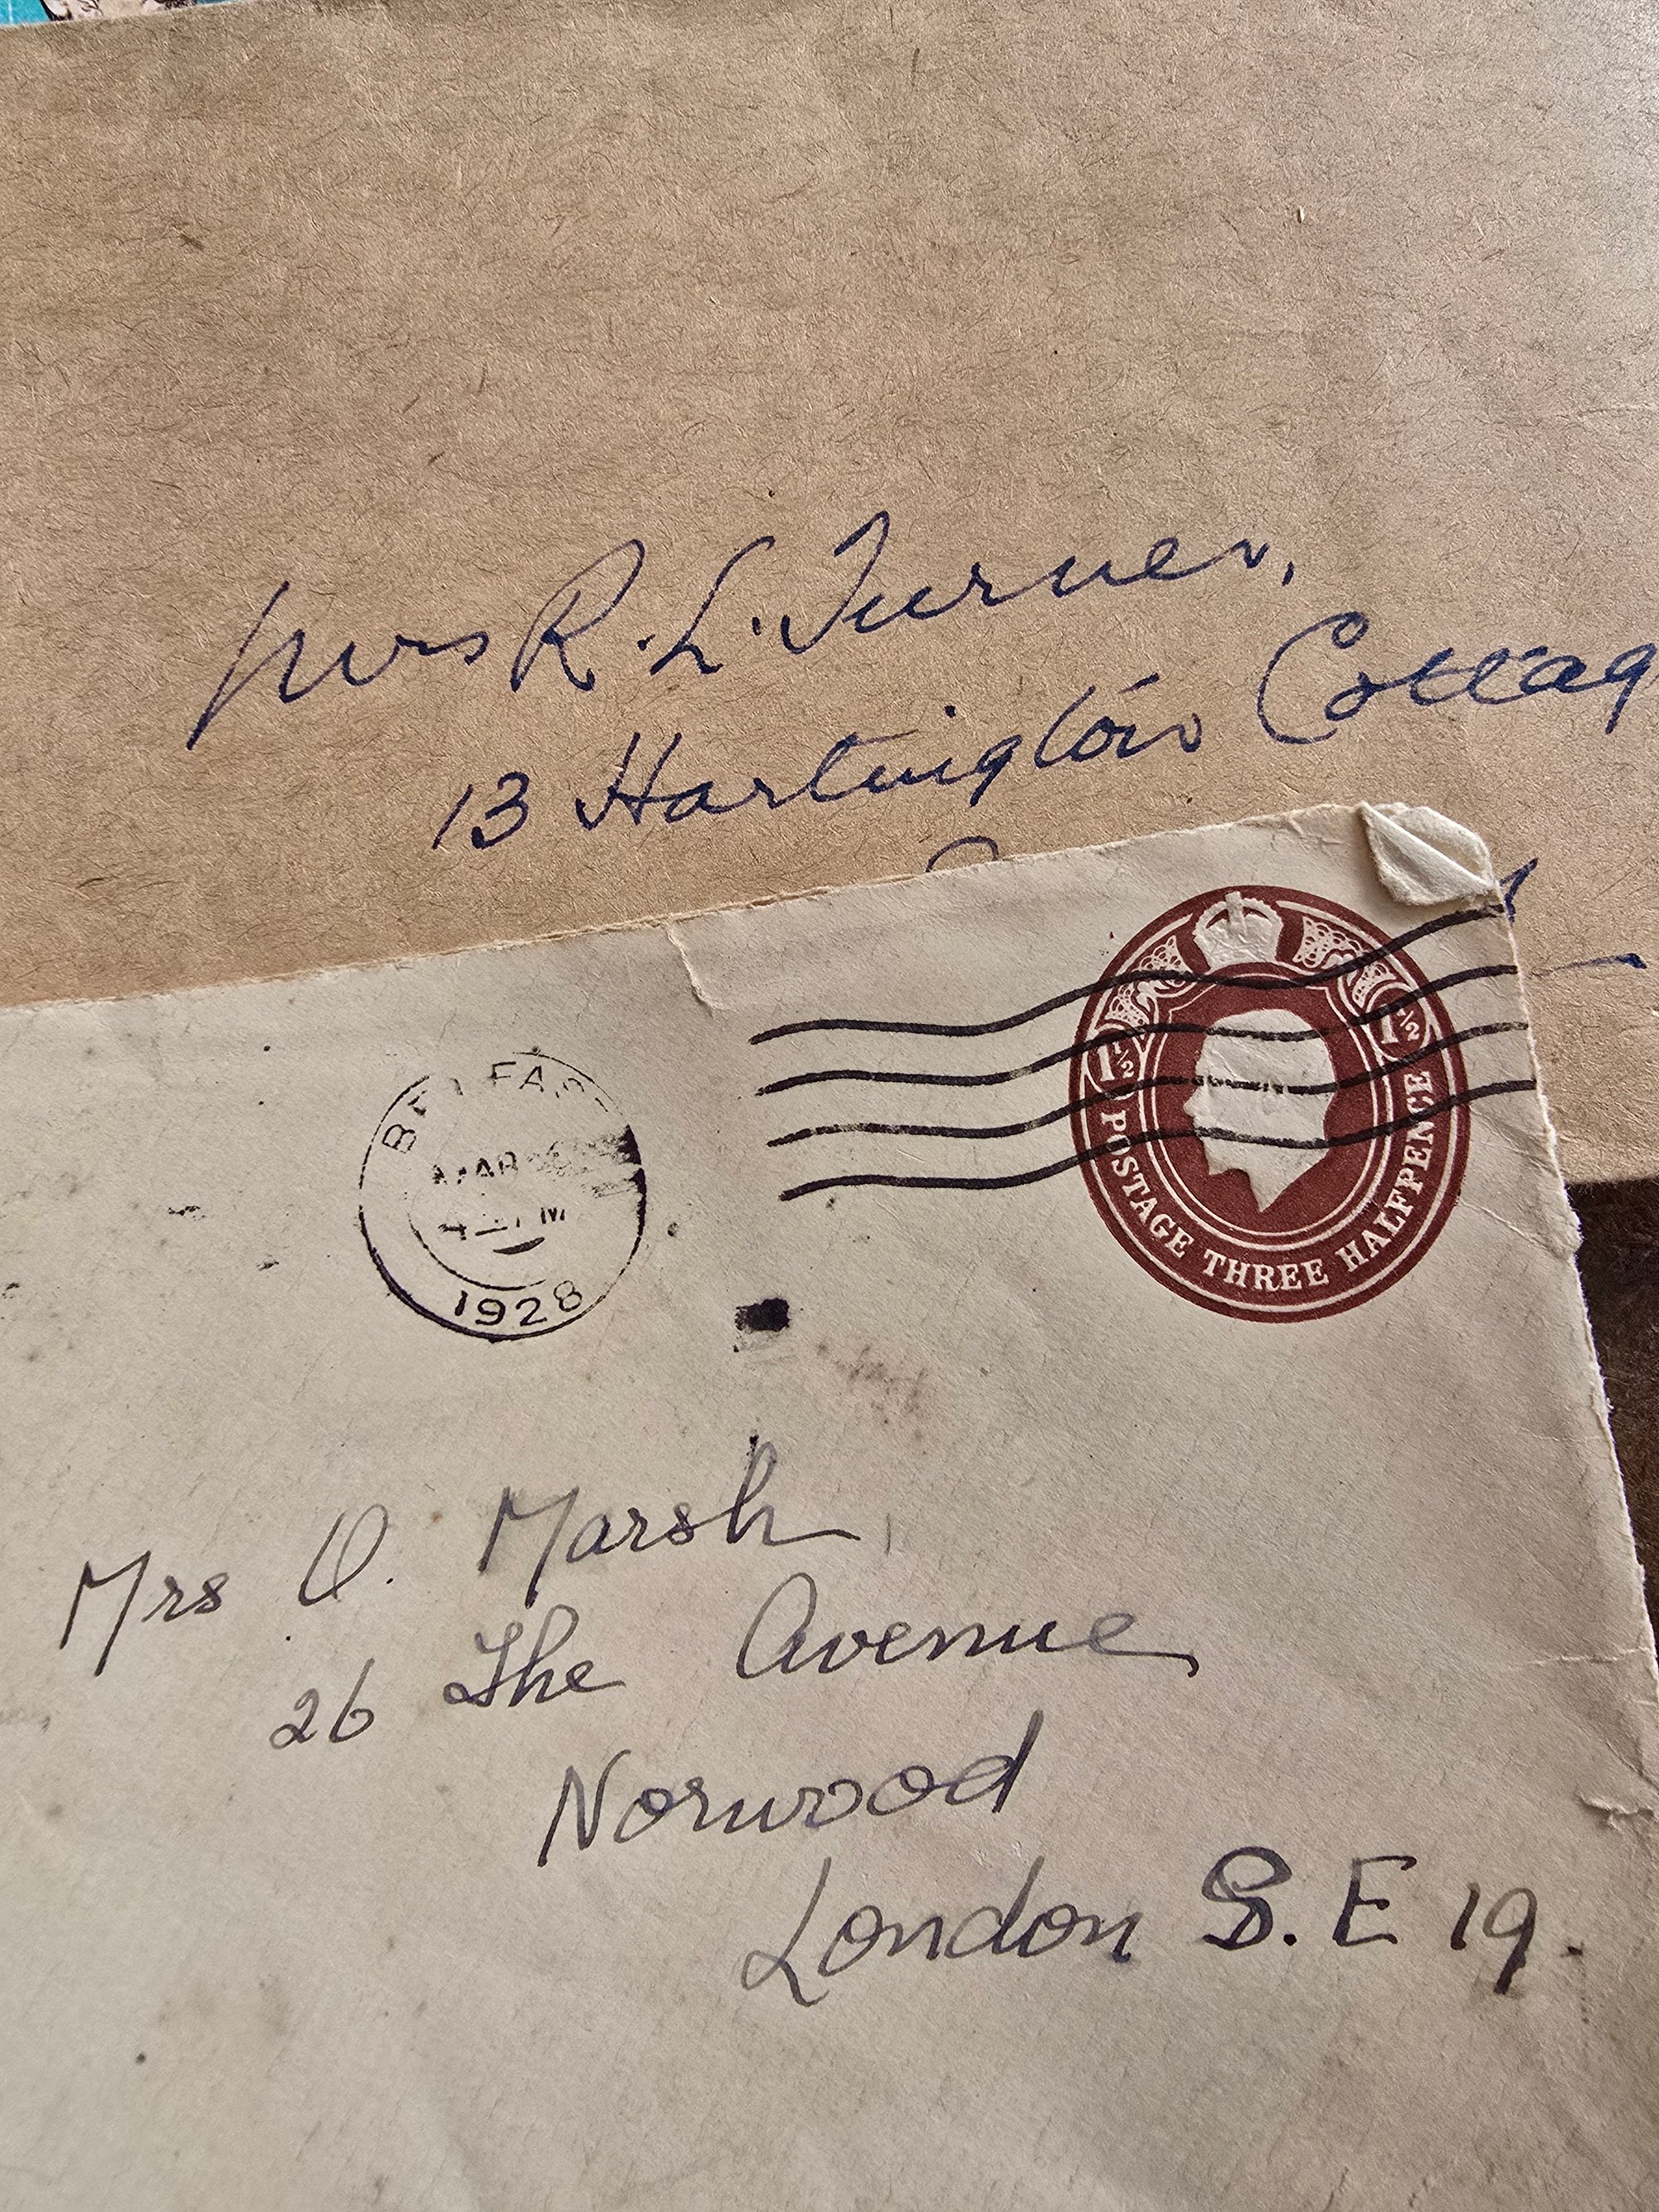 Mrs R. L. Turner,
13 Hartington Cottag
BELFAST
MAR
PM
1928
1½ 1½
POSTAGE THREE HALFPENCE
Mrs O. Marsh,
26 The Avenue
Norwood
London S.E 19.